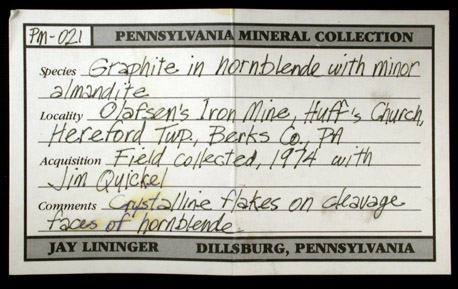 Pm-021 PENNSYLVANIA MINERAL COLLECTION
Species Graphite in hornblende with minor
almandite
Locality Olafsen's Iron Mine, Huff's Church,
Hereford Twp., Berks Co., PA
Acquisition Field collected, 1974 with
Jim Quickel
Comments Crystalline flakes on cleavage
faces of hornblende.
JAY LININGER DILLSBURG, PENNSYLVANIA